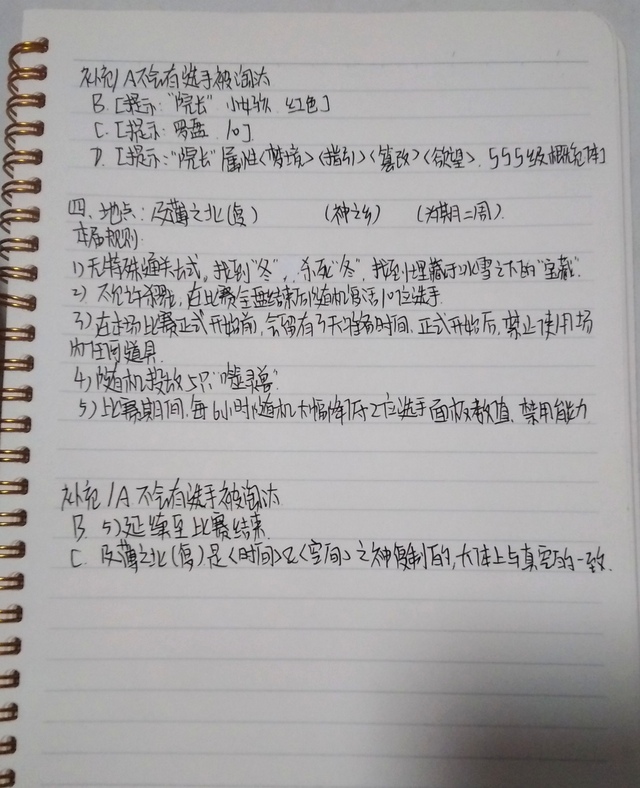 补充/A不会有选手被淘汰
B.[提示:"院长" 小女孩 红色]
C.[提示: 罗盘 10]
D.[提示:"院长"属性<梦境><指引><篡改><欲望>. 555级概念体]
四、地点: 及薄之北(复) (神之乡) (为期二周).
本届规则:
1)无特殊通关方式, 找到"冬", 杀死"冬", 找到埋藏于冰雪之下的"宝藏".
2) 不允许, 在比赛全盘结束后随机复活10位选手.
3)在本场比赛正式开始前, 会留有3天准备时间. 正式开始后, 禁止使用场
外任何道具.
4)随机投放5只"噬灵兽".
5)比赛期间, 每6小时随机大幅降低2位选手面板数值、禁用能力
补充/A 不会有选手被淘汰
B. 5)延续至比赛结束.
C. 及薄之北(复)是<时间>及<空间>之神复制的, 大体上与真实的一致.